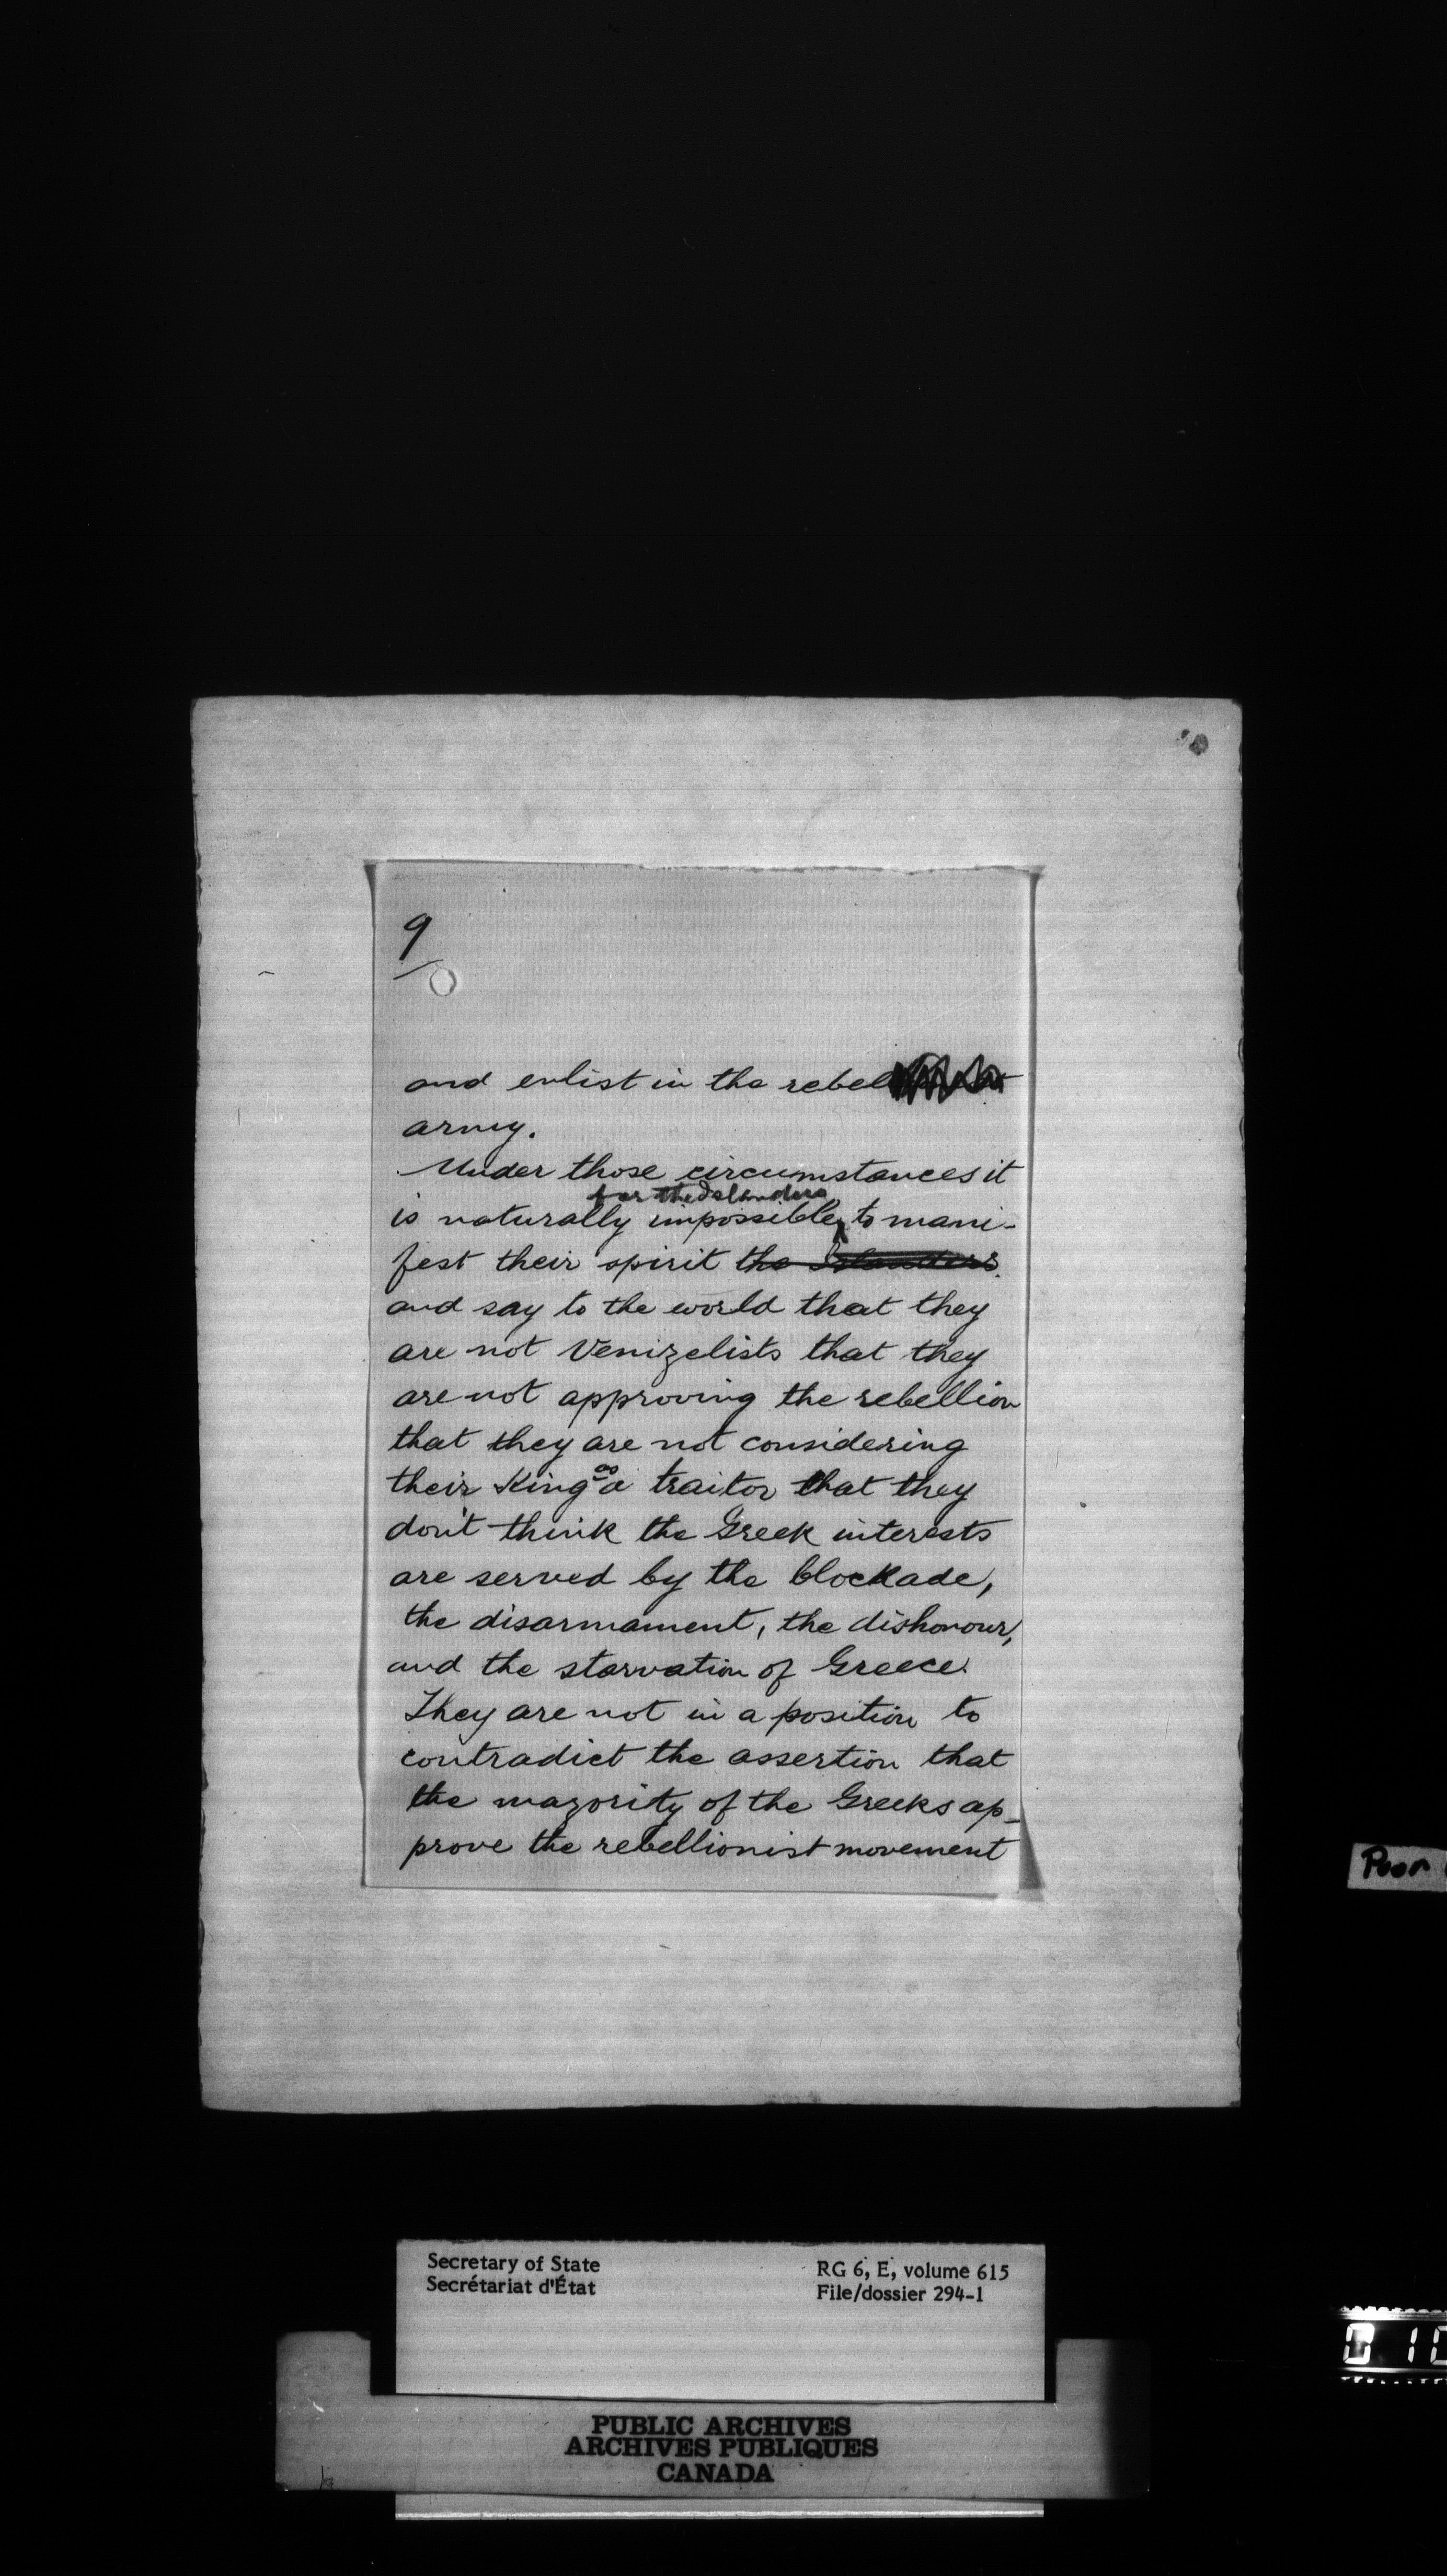 9
and enlist in the rebel
army.
Under those circumstances it
for the Islanders
is naturally impossible to mani-
fest their spirit the Islanders
and say to the world that they
are not Venizelists that they
are not approving the rebellion
that they are not considering
their King as a traitor that they
don't think the Greek interests
are served by the blockade,
the disarmament, the dishonour,
and the starvation of Greece.
They are not in a position to
contradict the assertion that
the majority of the Greeks ap-
prove the rebellionist movement
Poor
Secretary of State
Secrétariat d'État
RG 6, E, volume 615
File/dossier 294-1
010
PUBLIC ARCHIVES
ARCHIVES PUBLIQUES
CANADA